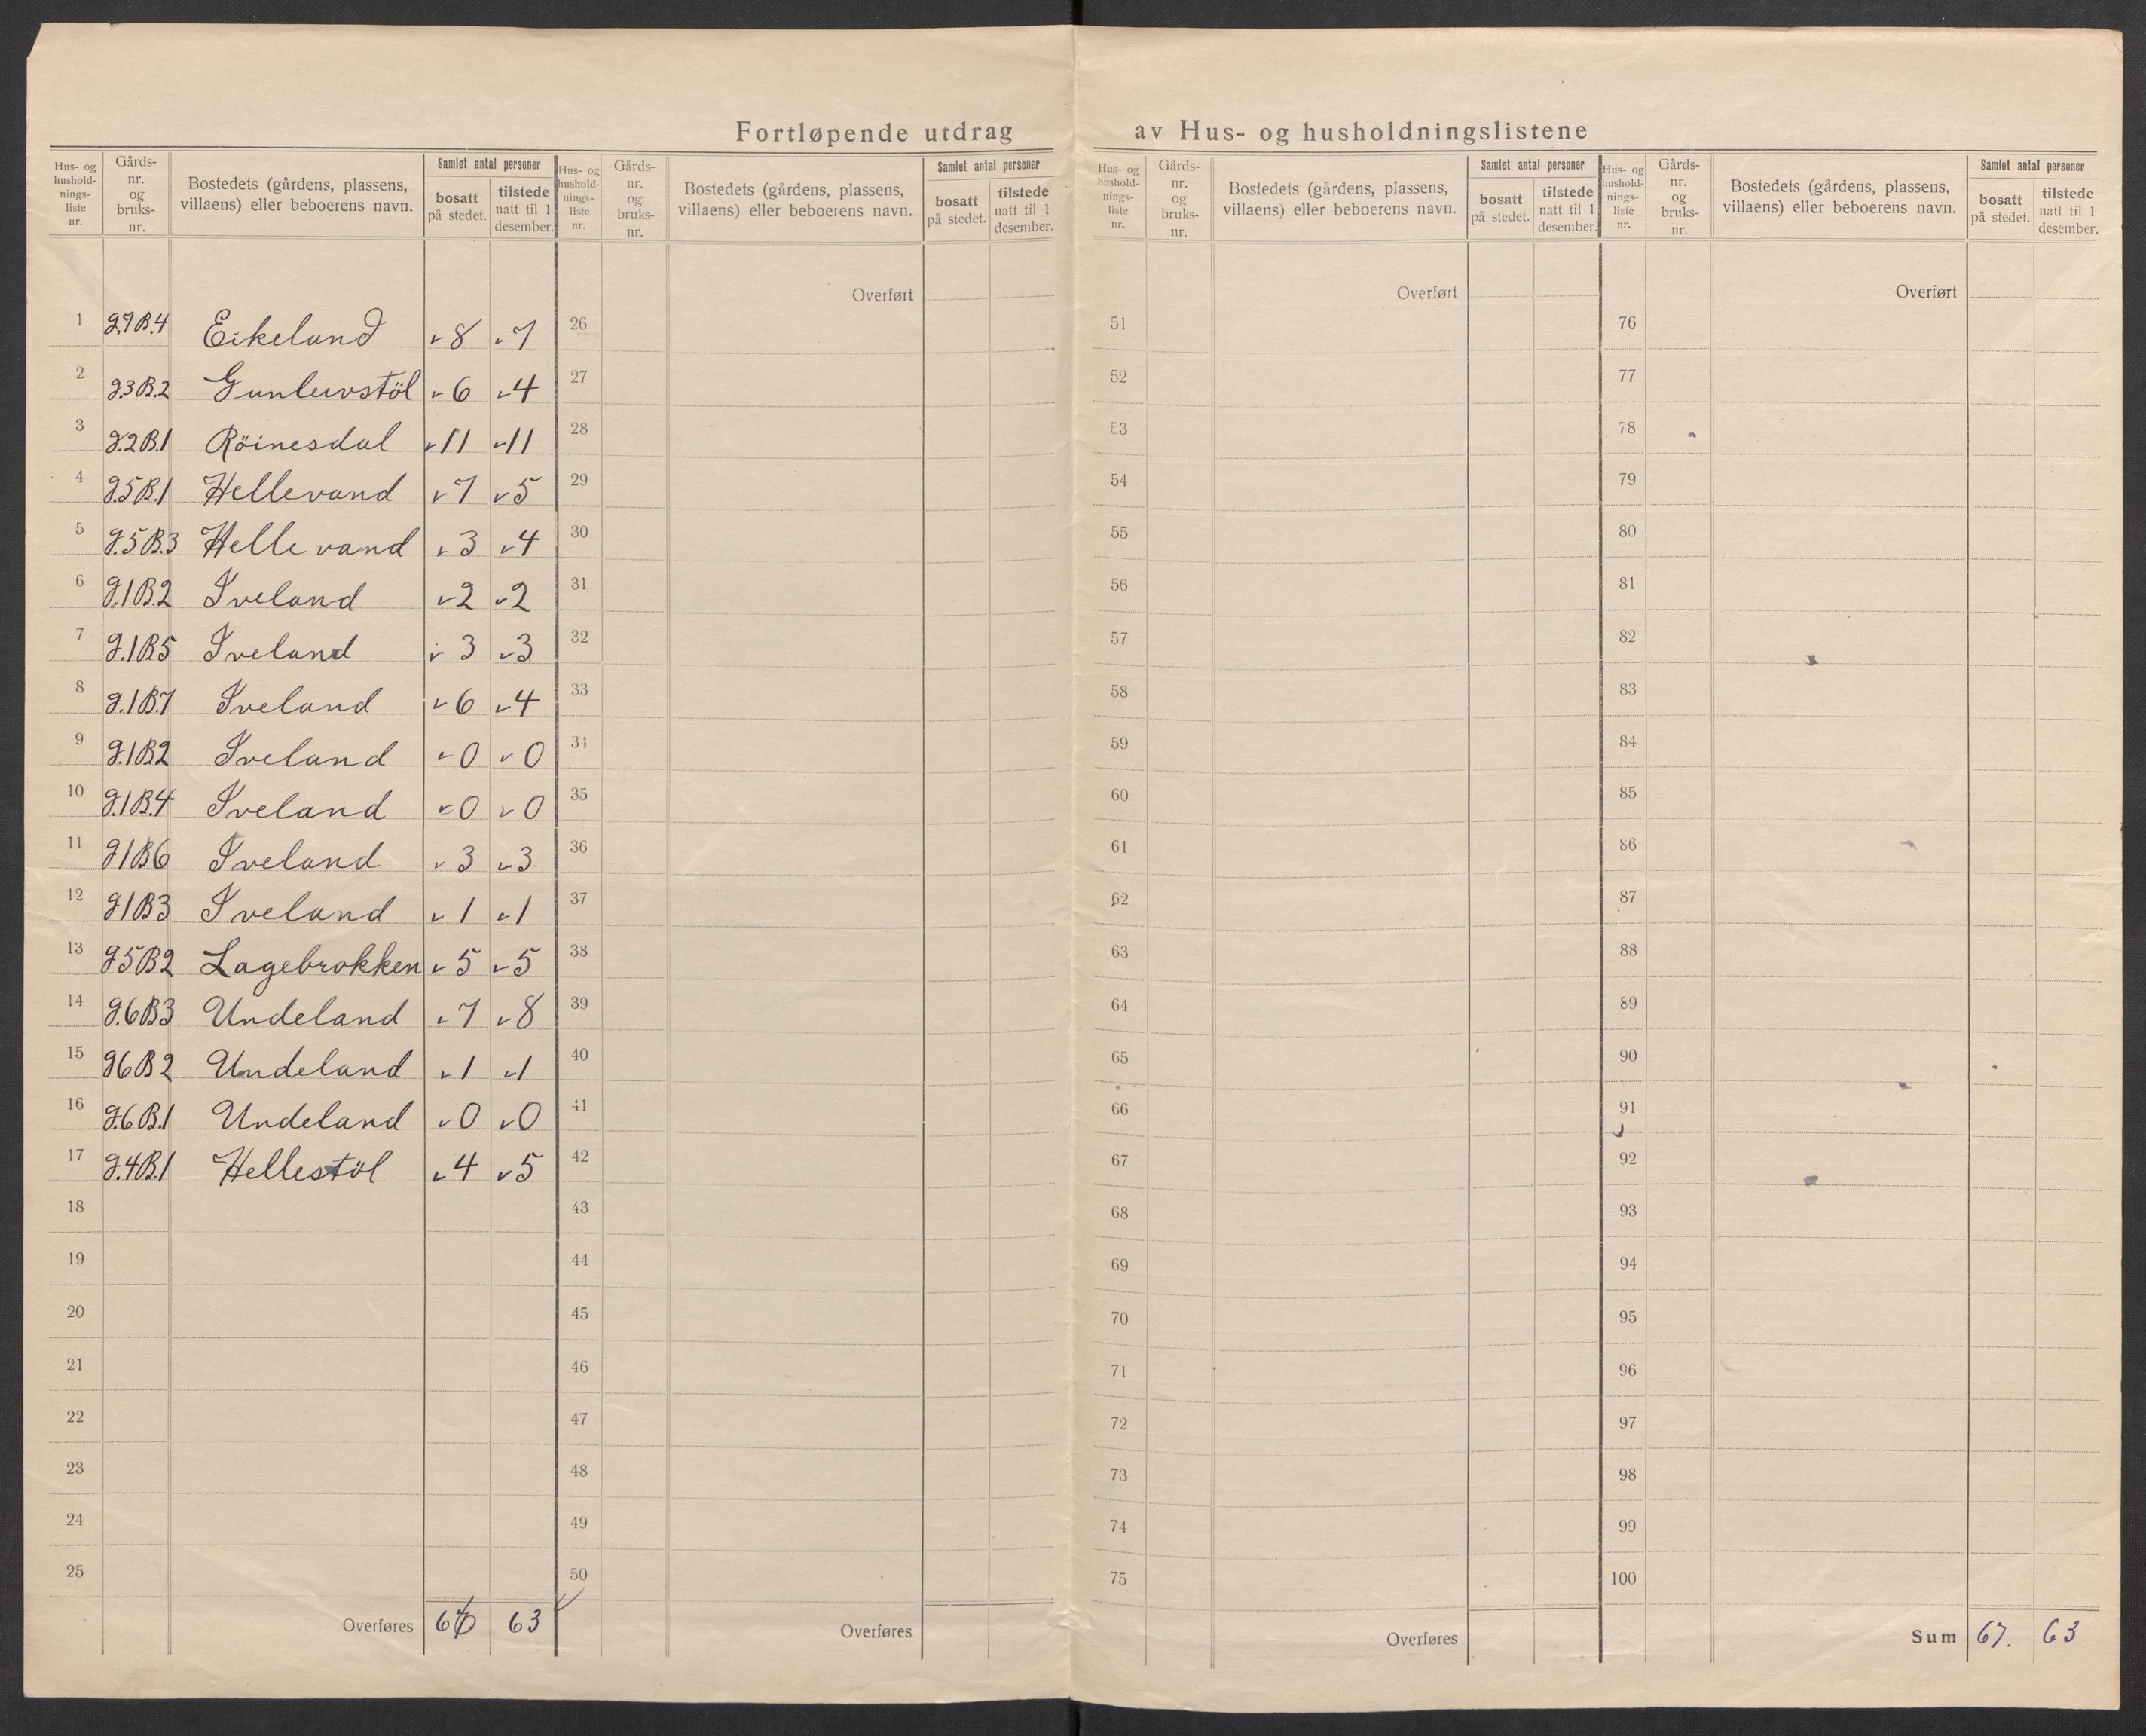 Fortløpende utdrag av Hus- og husholdningslistene
Hus- og hushold-nings-liste nr. Gårds-nr. og bruks-nr. Bostedets (gårdens, plassens, villaens) eller beboerens navn. Samlet antal personer bosatt på stedet. tilstede natt til 1 desember.
1 g.7 B.4 Eikeland 8 7
2 g.3 B.2 Gunleivstöl 6 4
3 g.2 B.1 Röinesdal 11 11
4 g.5 B.1 Hellevand 7 5
5 g.5 B.3 Hellevand 3 4
6 g.1 B.2 Iveland 2 2
7 g.1 B5 Iveland 3 3
8 g.1 B.7 Iveland 6 4
9 g.1 B2 Iveland 0 0
10 g.1 B.4 Iveland 0 0
11 g1 B6 Iveland 3 3
12 g1 B3 Iveland 1 1
13 g5 B2 Lagebrokken 5 5
14 g.6 B3 Undeland 7 8
15 g6 B2 Undeland 1 1
16 g.6 B.1 Undeland 0 0
17 g.4 B.1 Hellestöl 4 5
18
19
20
21
22
23
24
25
Overføres 67 63
Hus- og hushold-nings-liste nr. Gårds-nr. og bruks-nr. Bostedets (gårdens, plassens, villaens) eller beboerens navn. Samlet antal personer bosatt på stedet. tilstede natt til 1 desember.
Overført
26
27
28
29
30
31
32
33
34
35
36
37
38
39
40
41
42
43
44
45
46
47
48
49
50
Overføres
Hus- og hushold-nings-liste nr. Gårds-nr. og bruks-nr. Bostedets (gårdens, plassens, villaens) eller beboerens navn. Samlet antal personer bosatt på stedet. tilstede natt til 1 desember.
Overført
51
52
53
54
55
56
57
58
59
60
61
62
63
64
65
66
67
68
69
70
71
72
73
74
75
Overføres
Hus- og hushold-nings-liste nr. Gårds-nr. og bruks-nr. Bostedets (gårdens, plassens, villaens) eller beboerens navn. Samlet antal personer bosatt på stedet. tilstede natt til 1 desember.
Overført
76
77
78
79
80
81
82
83
84
85
86
87
88
89
90
91
92
93
94
95
96
97
98
99
100
Sum 67. 63